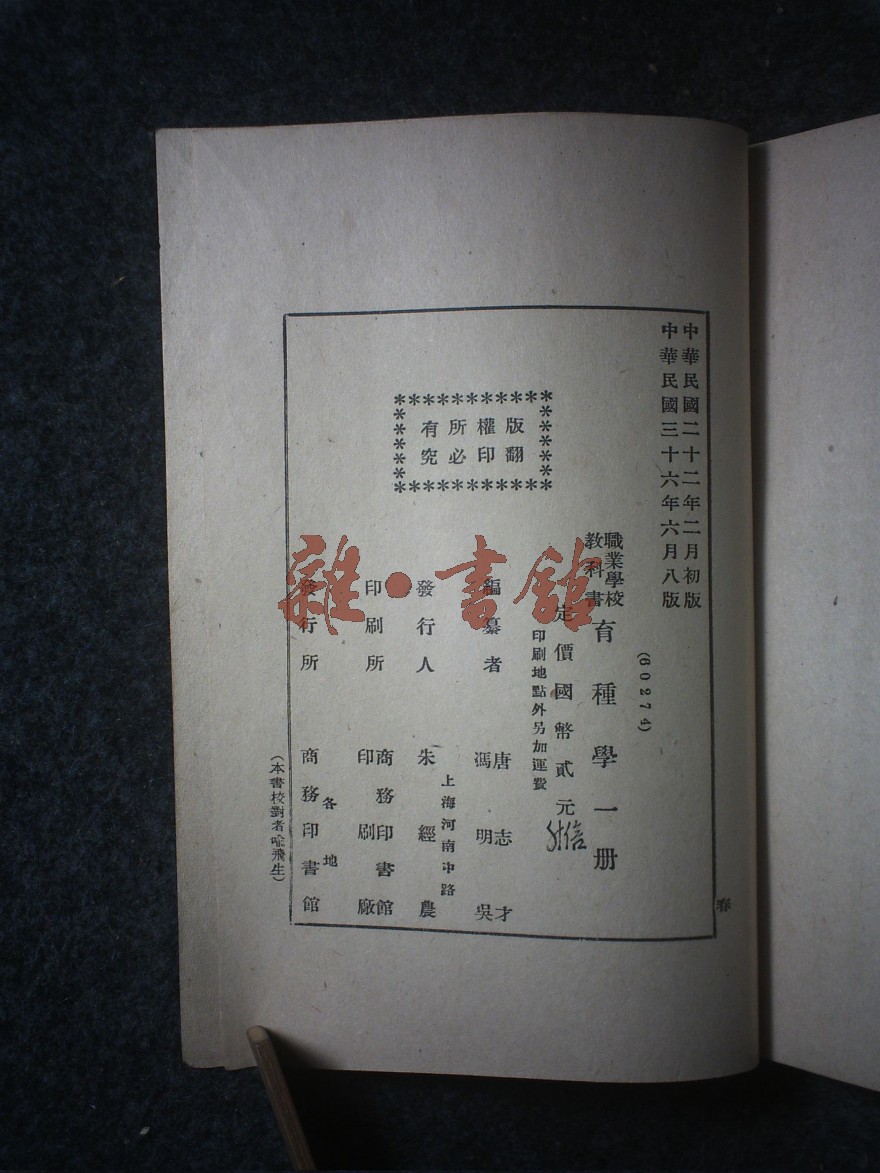 中華民國二十二年二月初版
中華民國三十六年六月八版
(60274)
職業學校
教科書
育種學一冊
定價國幣貳元
印刷地點外另加運費
版權所有
翻印必究
編纂者
唐志才
馮明吳
發行人
上海河南中路
朱經農
印刷所
商務印書館
印刷廠
發行所
各地
商務印書館
(本書校對者喻飛生)
春
雜·書館